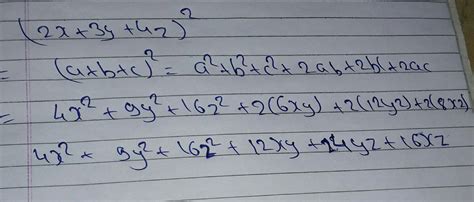 (2x+3y+4z)²
= (a+b+c)² = a²+b²+c²+2ab+2bc+2ac
= 4x²+9y²+16z²+2(6xy)+2(12yz)+2(8xz)
4x²+ 9y²+16z²+12xy+24yz+16xz